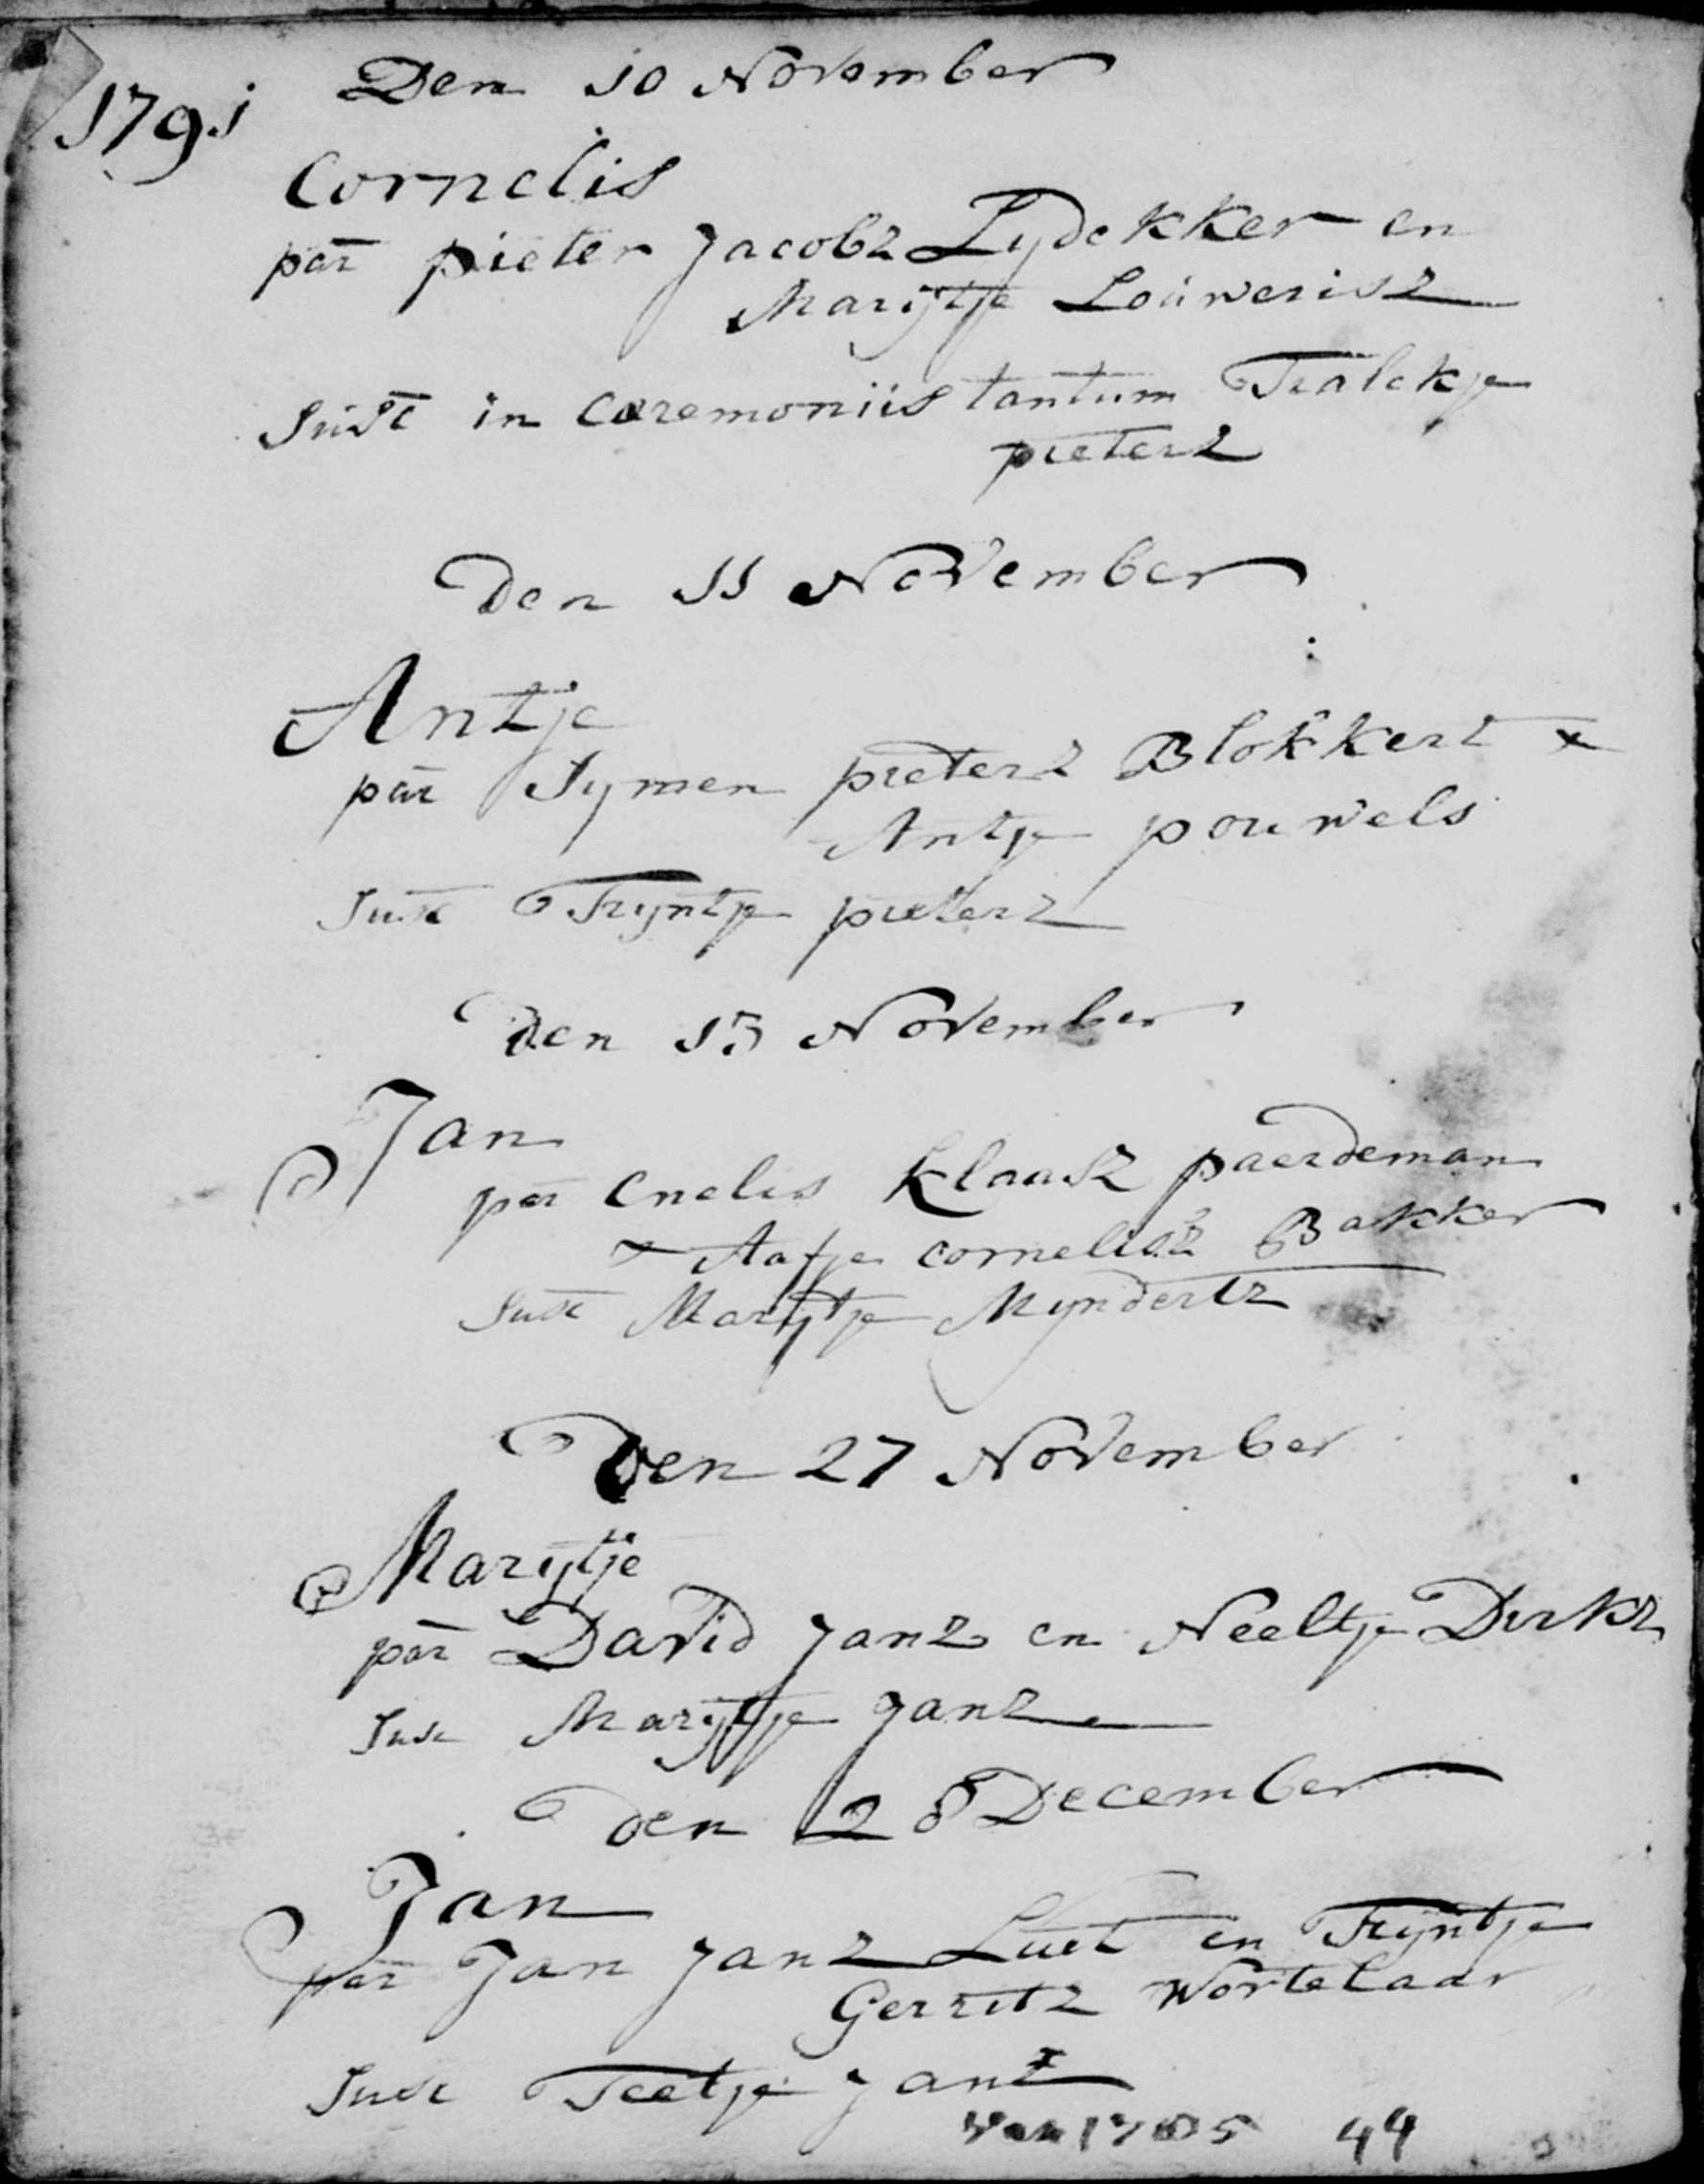 1791
Den 10 November
Cornelis
par pieter Jacobz Lydekker en
Marijtje Louwerisz
Susc in Caeremoniis tantum Tralckje
pieterz
Den 11 November
Antje
par Symen pieterz Blokkert x
Antje pouwels
Susc Tryntje pieterz
Den 15 November
Jan
par Cnelis Klaasz paerdeman
x Aafje cornelisz Bakker
Susc Marijtje Myndertz
Den 27 November
Marijtje
par David Janz en Neeltje Dirkz
Susc Marijtje Janz
Den 28 December
Jan
par Jan Janz Luet en Tryntje
Gerritz Wortelaar
Susc Teetje Janz
44